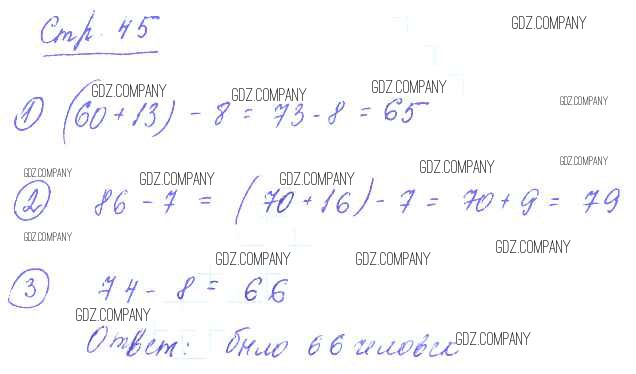 Стр. 45
GDZ.COMPANY
GDZ.COMPANY GDZ.COMPANY GDZ.COMPANY
1) (60+13) - 8 = 73 - 8 = 65
GDZ.COMPANY
GDZ.COMPANY GDZ.COMPANY GDZ.COMPANY GDZ.COMPANY GDZ.COMPANY
2) 86 - 7 = (70+16) - 7 = 70 + 9 = 79
GDZ.COMPANY
GDZ.COMPANY GDZ.COMPANY GDZ.COMPANY
3) 74 - 8 = 66
GDZ.COMPANY
Ответ: было 66 человек
GDZ.COMPANY